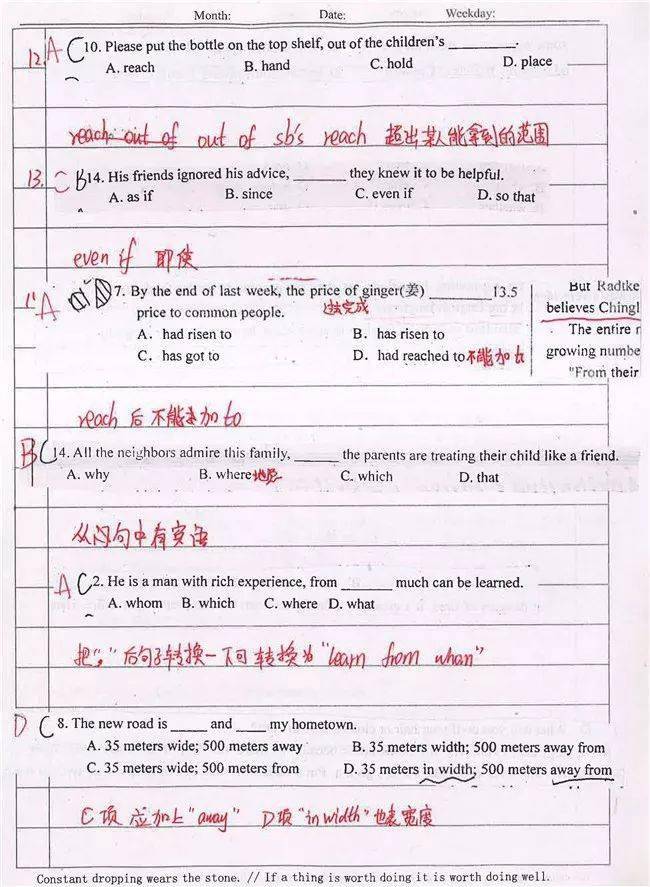 Month: Date: Weekday:
12. A C 10. Please put the bottle on the top shelf, out of the children's ________.
A. reach B. hand C. hold D. place
reach out of out of sb's reach 超出某人能拿到的范围
13. C B 14. His friends ignored his advice, ______ they knew it to be helpful.
A. as if B. since C. even if D. so that
even if 即使
A 7. By the end of last week, the price of ginger(姜) ______ 13.5
过去完成
price to common people.
A. had risen to B. has risen to
C. has got to D. had reached to 不能加to
But Radtke
believes Chingl
The entire r
growing numbe
"From their
reach 后不能加to
B C 14. All the neighbors admire this family, ______ the parents are treating their child like a friend.
A. why B. where 地点 C. which D. that
从问句中有宾语
A C 2. He is a man with rich experience, from ______ much can be learned.
A. whom B. which C. where D. what
把“,”后句子转换一下可转换为“learn from whom”
D C 8. The new road is _____ and ____ my hometown.
A. 35 meters wide; 500 meters away B. 35 meters width; 500 meters away from
C. 35 meters wide; 500 meters from D. 35 meters in width; 500 meters away from
C项 应加上“away” D项“in width”也表宽度
Constant dropping wears the stone. // If a thing is worth doing it is worth doing well.